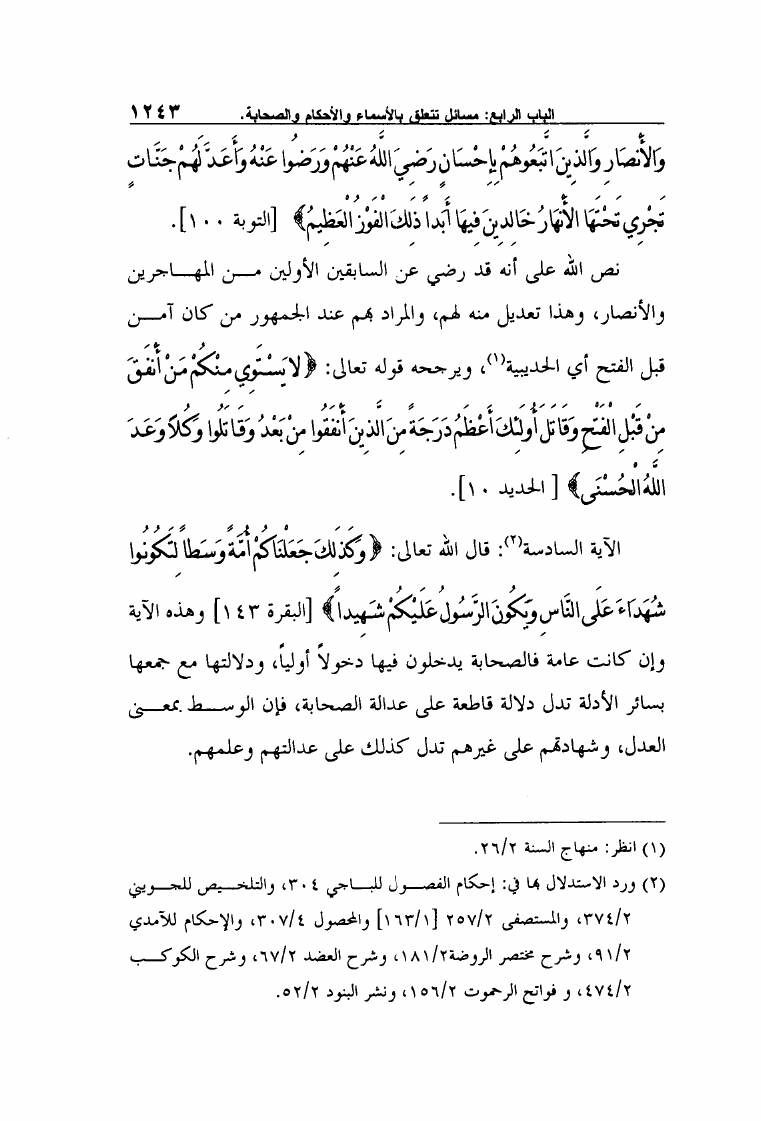 الباب الرابع: مسائل تتعلق بالأسماء والأحكام والصحابة. ١٢٤٣
وَالأَنصَارِ وَالَّذِينَ اتَّبَعُوهُمْ بِإِحْسَانٍ رَضِيَ اللَّهُ عَنْهُمْ وَرَضُوا عَنْهُ وَأَعَدَّ لَهُمْ جَنَّاتٍ
تَجْرِي تَحْتَهَا الأَنْهَارُ خَالِدِينَ فِيهَا أَبَداً ذَلِكَ الْفَوْزُ الْعَظِيمُ﴾ [التوبة ١٠٠].
نص الله على أنه قد رضي عن السابقين الأولين مـن المهـاجرين
والأنصار، وهذا تعديل منه لهم، والمراد بهم عند الجمهور من كان آمـن
قبل الفتح أي الحديبية(١)، ويرجحه قوله تعالى: ﴿لا يَسْتَوِي مِنْكُمْ مَنْ أَنْفَقَ
مِنْ قَبْلِ الْفَتْحِ وَقَاتَلَ أُولَئِكَ أَعْظَمُ دَرَجَةً مِنَ الَّذِينَ أَنْفَقُوا مِنْ بَعْدُ وَقَاتَلُوا وَكُلاًّ وَعَدَ
اللَّهُ الْحُسْنَى﴾ [الحديد ١٠].
الآية السادسة(٢): قال الله تعالى: ﴿وَكَذَلِكَ جَعَلْنَاكُمْ أُمَّةً وَسَطاً لِتَكُونُوا
شُهَدَاءَ عَلَى النَّاسِ وَيَكُونَ الرَّسُولُ عَلَيْكُمْ شَهِيداً﴾ [البقرة ١٤٣] وهذه الآية
وإن كانت عامة فالصحابة يدخلون فيها دخولاً أولياً، ودلالتها مع جمعها
بسائر الأدلة تدل دلالة قاطعة على عدالة الصحابة، فإن الوسـط بمعـنى
العدل، وشهادتهم على غيرهم تدل كذلك على عدالتهم وعلمهم.
(١) انظر: منهاج السنة ٢٦/٢.
(٢) ورد الاستدلال بها في: إحكام الفصـول للبـاجي ٣٠٤، والتلخـيص للجـويني
٣٧٤/٢، والمستصفى ٢٥٧/٢ [١٦٣/١] والمحصول ٣٠٧/٤، والإحكام للآمدي
٩١/٢، وشرح مختصر الروضة١٨١/٢، وشرح العضد ٦٧/٢، وشرح الكوكـب
٤٧٤/٢، و فواتح الرحموت ١٥٦/٢، ونشر البنود ٥٢/٢.